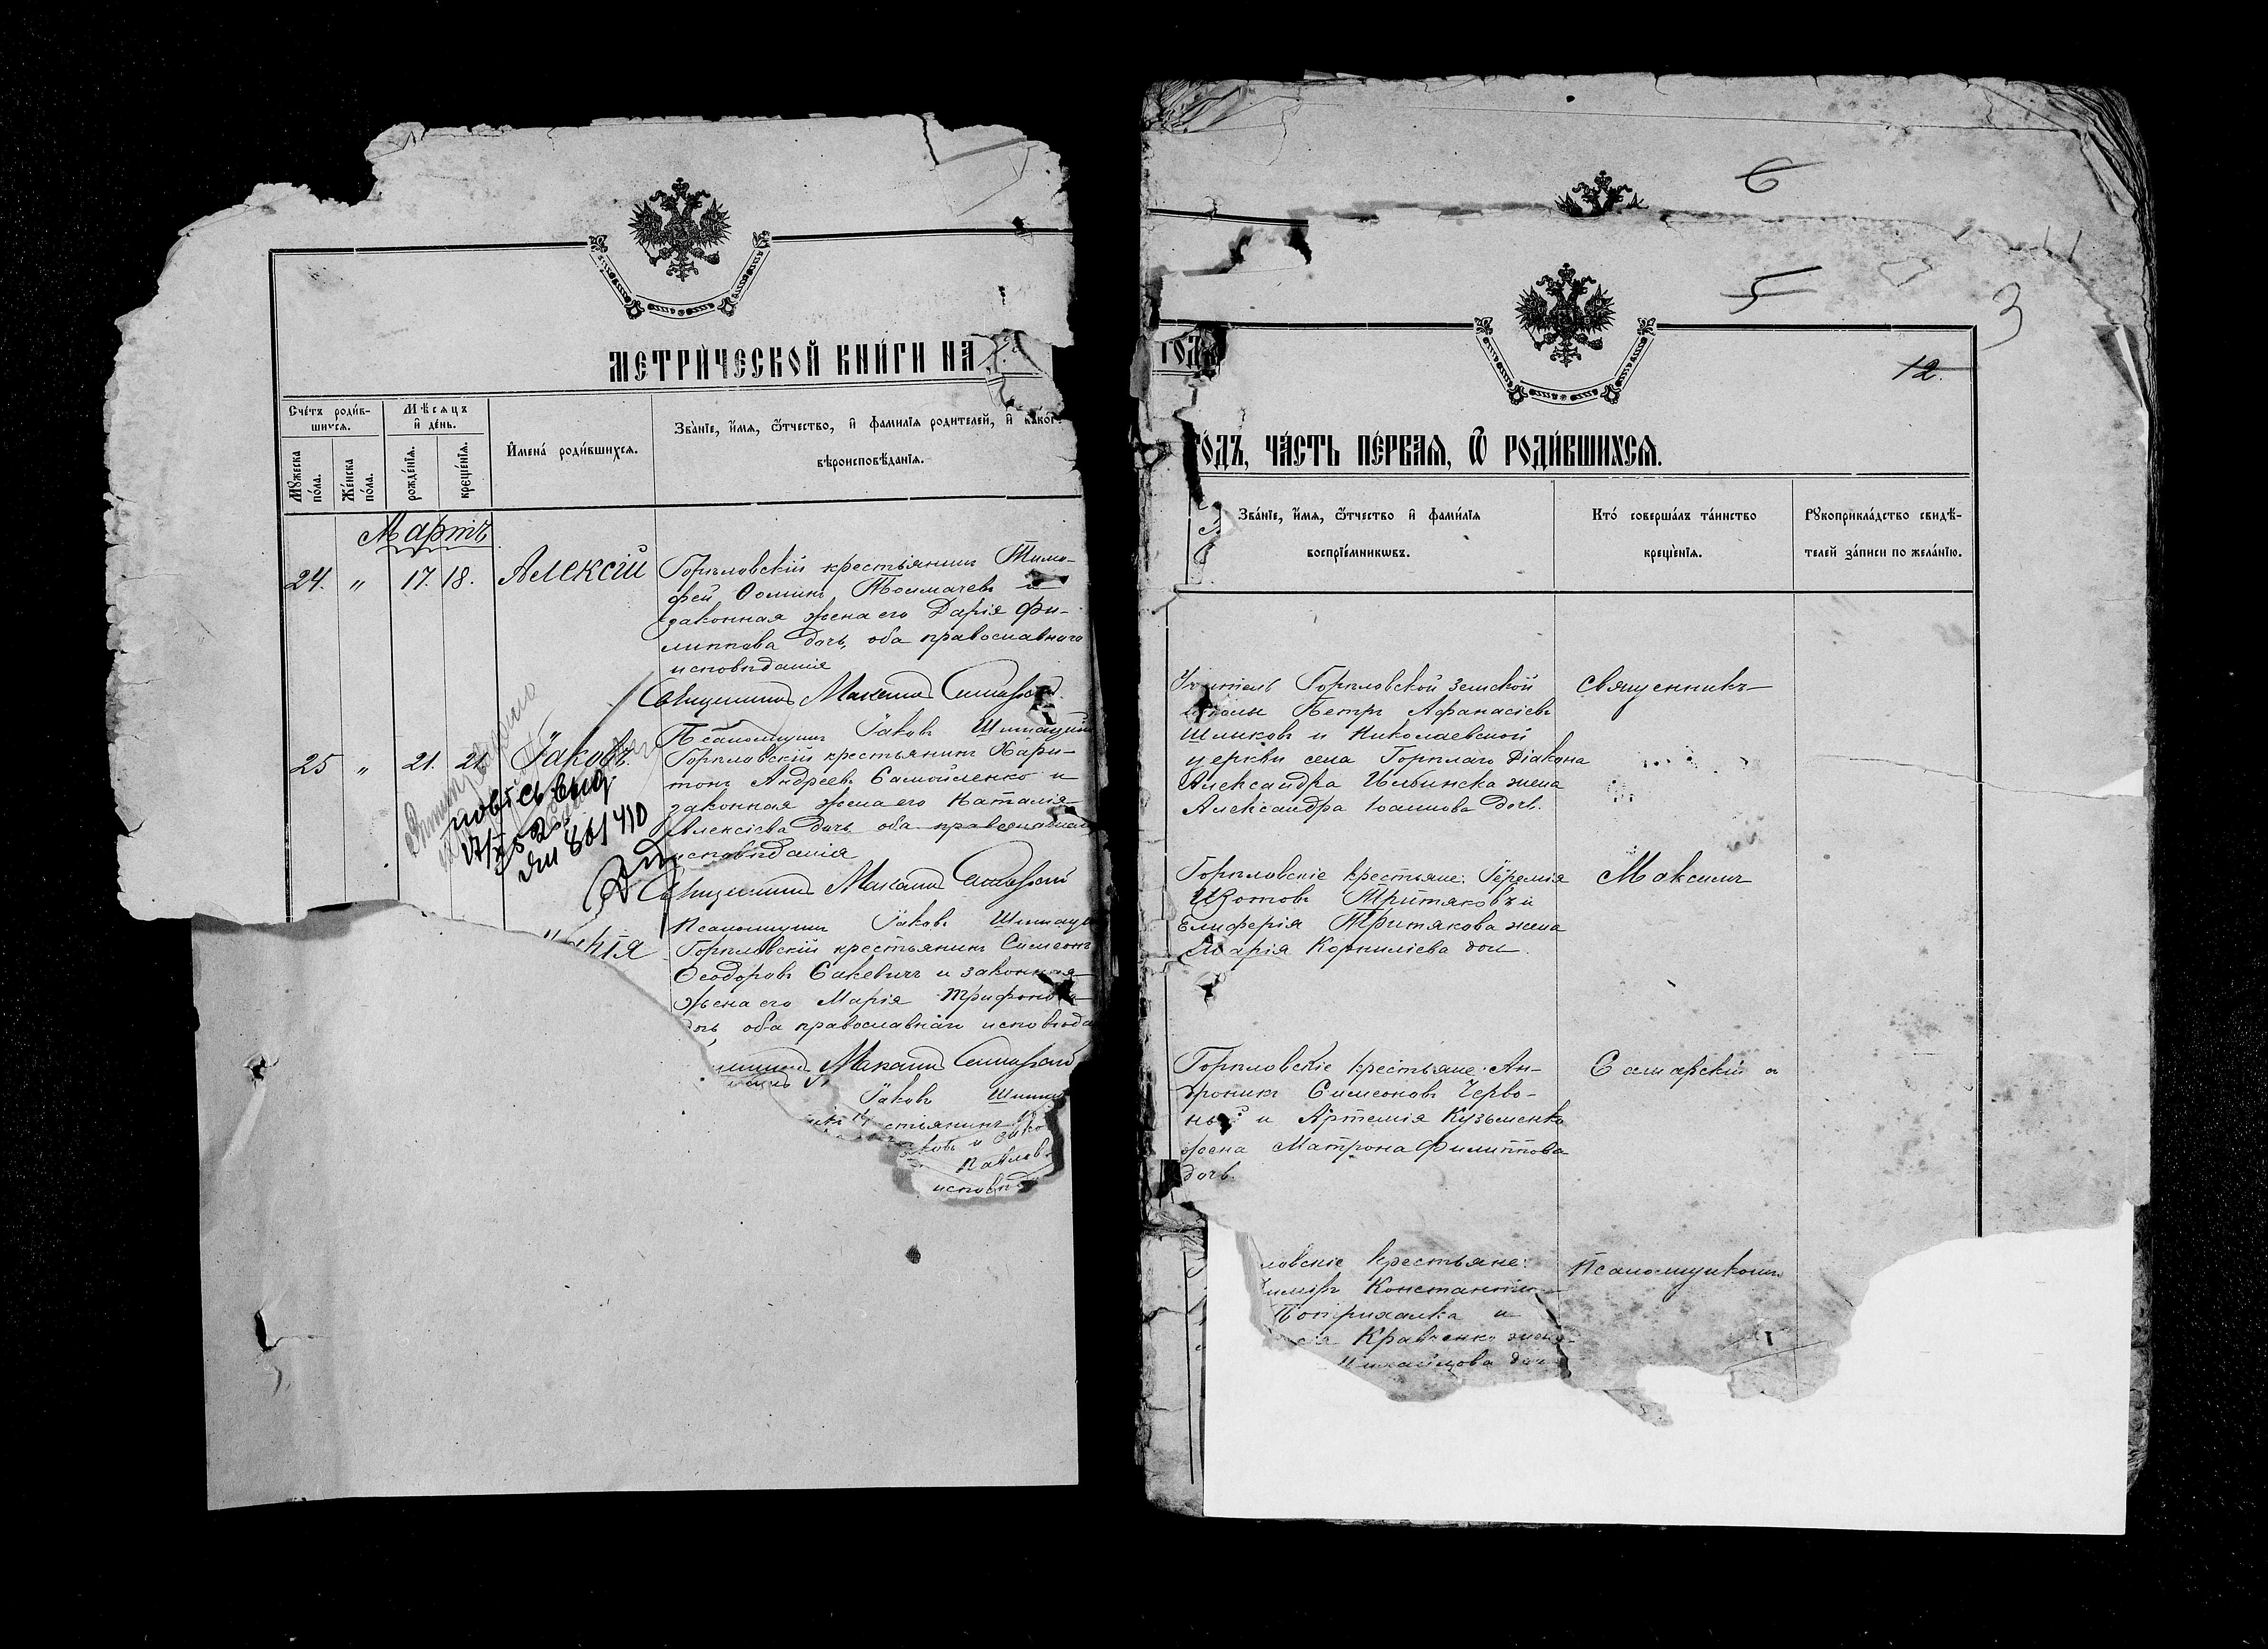 МЕТРИЧЕСКОЙ КНИГИ НА
Счетъ родив-
шихся.
Мѣсяцъ
и день.
Мужеска
пола.
Женска
пола.
рожденія.
крещенія.
Имена родившихся.
Званіе, имя, отчество, и фамилія родителей, и како
вѣроисповѣданія.
Мартъ
24. " 17. 18. Алексій
Горѣловскій крестьянинъ Тимо-
фей Ѳоминъ и
законная жена его Дарія Фи-
липпова дочь, оба православнаго
исповѣданія
Священникъ Максимъ Самарскій
Псаломщикъ Іаковъ
25 " 21. 21. Іаковъ.
Горѣловскій крестьянинъ Хари-
тонъ Андреевъ Самойленко и
законная жена его Наталія
Алексіева дочь оба
исповѣданія
Священникъ Максимъ Самарскій
Псаломщикъ Іаковъ
Горѣловскій крестьянинъ Симеонъ
Ѳеодоровъ Сакевичъ и законная
жена его Марія Трифонова
дочь оба православнаго исповѣда
Максимъ Самарскій
Іаковъ
стьянинъ
ковъ и зако
Павлов
исповѣд
6
5
3
12.
ГОДЪ
ГОДЪ, ЧАСТЬ ПЕРВАЯ, Ѿ РОДИВШИХСЯ.
Званіе, имя, отчество и фамилія
воспріемниковъ.
Кто совершалъ таинство
крещенія.
Рукоприкладство свидѣ-
телей записи по желанію.
Учитель Горѣловской земской
школы Петръ Аѳанасіевъ
Шликовъ и Николаевской
церкви села Горѣлаго Діакона
Александра Ильинска жена
Александра Іоаннова дочь.
Священникъ
Горѣловскіе крестьяне: Іеремія
Изотовъ Тритяковъ и
Елиферія Тритякова жена
Марія Корниліева доч
Максимъ
Горѣловскіе крестьяне: Ан-
дроникъ Симеоновъ Черво-
ный и Артемія Кузьменка
жена Матрона Филиппова
дочь.
Самарскій съ
ловскіе крестьяне:
Константи
и
Кравченк жена
дочь
Псаломщикомъ